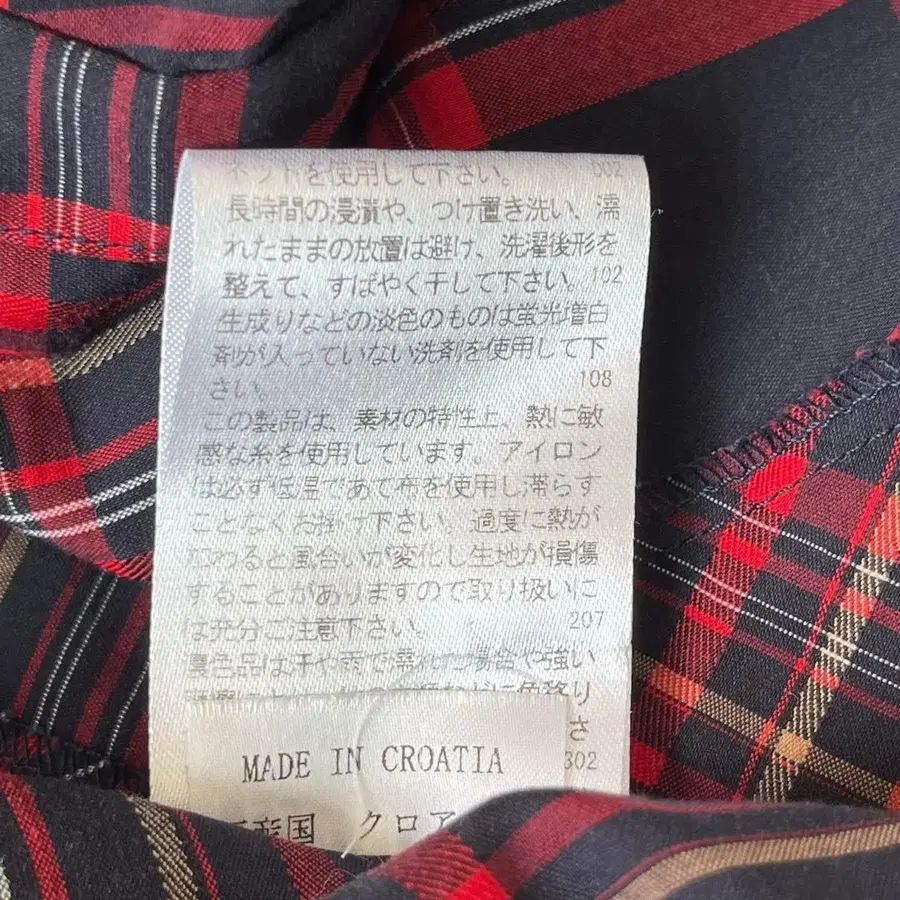 ネットを使用して下さい。 002
長時間の浸漬や、つけ置き洗い、濡
れたままの放置は避け、洗濯後形を
整えて、すばやく干して下さい。102
生成りなどの淡色のものは蛍光増白
剤が入っていない洗剤を使用して下
さい。 108
この製品は、素材の特性上、熱に敏
感な糸を使用しています。アイロン
は必ず低温であて布を使用し滞らす
ことなくお掛け下さい。過度に熱が
加わると風合いが変化し生地が損傷
することがありますので取り扱いに
は充分ご注意下さい。 207
濃色品は汗や雨で濡れた場合や強い
色移り
さ
302
MADE IN CROATIA
産国 クロア